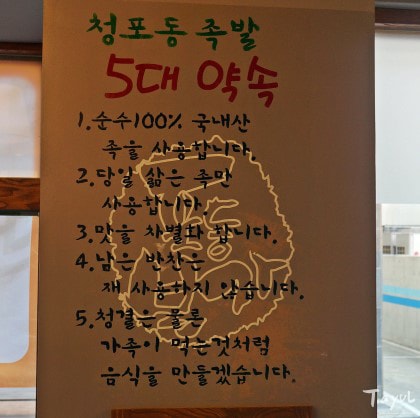 청포동 족발
5대 약속
1. 순수100% 국내산
족을 사용합니다.
2. 당일 삶은 족만
사용합니다.
3. 맛을 차별화 합니다.
4. 남은 반찬은
재 사용하지 않습니다.
5. 청결은 물론
가족이 먹는것처럼
음식을 만들겠습니다.